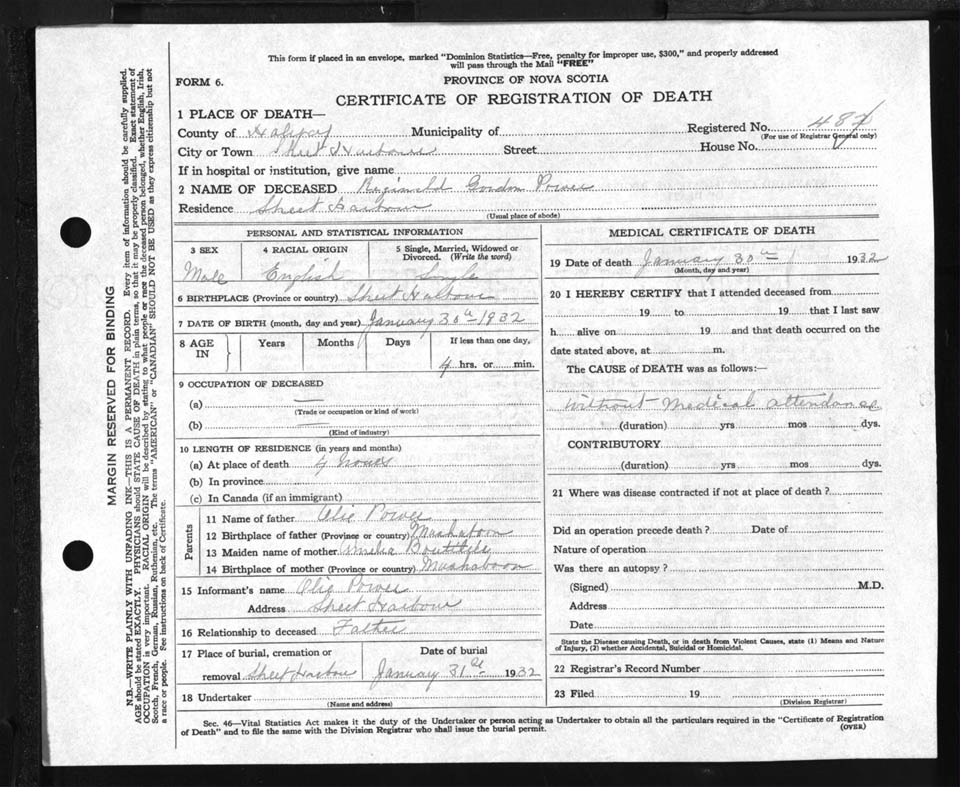 This form if placed in an envelope, marked "Dominion Statistics—Free, penalty for improper use, $300," and properly addressed
will pass through the Mail "FREE"
FORM 6.
PROVINCE OF NOVA SCOTIA
CERTIFICATE OF REGISTRATION OF DEATH
1 PLACE OF DEATH—
County of Halifax Municipality of Registered No. 487
(For use of Registrar General only)
City or Town Sheet Harbour Street House No.
If in hospital or institution, give name
2 NAME OF DECEASED Reginald Gordon Power
Residence Sheet Harbour
(Usual place of abode)
PERSONAL AND STATISTICAL INFORMATION
3 SEX 4 RACIAL ORIGIN 5 Single, Married, Widowed or
Divorced. (Write the word)
Male English Single
6 BIRTHPLACE (Province or country) Sheet Harbour
7 DATE OF BIRTH (month, day and year) January 30th 1932
8 AGE IN Years Months Days If less than one day,
4 hrs. or min.
9 OCCUPATION OF DECEASED
(a) —
(Trade or occupation or kind of work)
(b) —
(Kind of industry)
10 LENGTH OF RESIDENCE (in years and months)
(a) At place of death 4 hours
(b) In province
(c) In Canada (if an immigrant)
Parents
11 Name of father Power
12 Birthplace of father (Province or country) Mushaboon
13 Maiden name of mother Amelia
14 Birthplace of mother (Province or country) Mushaboon
15 Informant's name Power
Address Sheet Harbour
16 Relationship to deceased Father
17 Place of burial, cremation or Date of burial
removal Sheet Harbour January 31st 1932
18 Undertaker
(Name and address)
MEDICAL CERTIFICATE OF DEATH
19 Date of death January 30th 1932
(Month, day and year)
20 I HEREBY CERTIFY that I attended deceased from
19 to 19 that I last saw
h alive on 19 and that death occurred on the
date stated above, at m.
The CAUSE of DEATH was as follows:—
Without Medical attendance
(duration) yrs mos dys.
CONTRIBUTORY
(duration) yrs mos dys.
21 Where was disease contracted if not at place of death?
Did an operation precede death? Date of
Nature of operation
Was there an autopsy?
(Signed) M.D.
Address
Date
State the Disease causing Death, or in death from Violent Causes, state (1) Means and Nature
of Injury, (2) whether Accidental, Suicidal or Homicidal.
22 Registrar's Record Number
23 Filed 19
(Division Registrar)
Sec. 46—Vital Statistics Act makes it the duty of the Undertaker or person acting as Undertaker to obtain all the particulars required in the "Certificate of Registration
of Death" and to file the same with the Division Registrar who shall issue the burial permit.
(OVER)
MARGIN RESERVED FOR BINDING
N.B.—WRITE PLAINLY WITH UNFADING INK—THIS IS A PERMANENT RECORD. Every item of information should be carefully supplied.
AGE should be stated EXACTLY. PHYSICIANS should STATE CAUSE OF DEATH in plain terms, so that it may be properly classified. Exact statement of
OCCUPATION is very important. RACIAL ORIGIN will be described by stating to what people or race the deceased person belonged, whether English, Irish,
Scotch, French, German, Russian, Ruthenian, etc. The terms "AMERICAN" or "CANADIAN" SHOULD NOT BE USED as they express citizenship but not
a race or people. See instructions on back of Certificate.